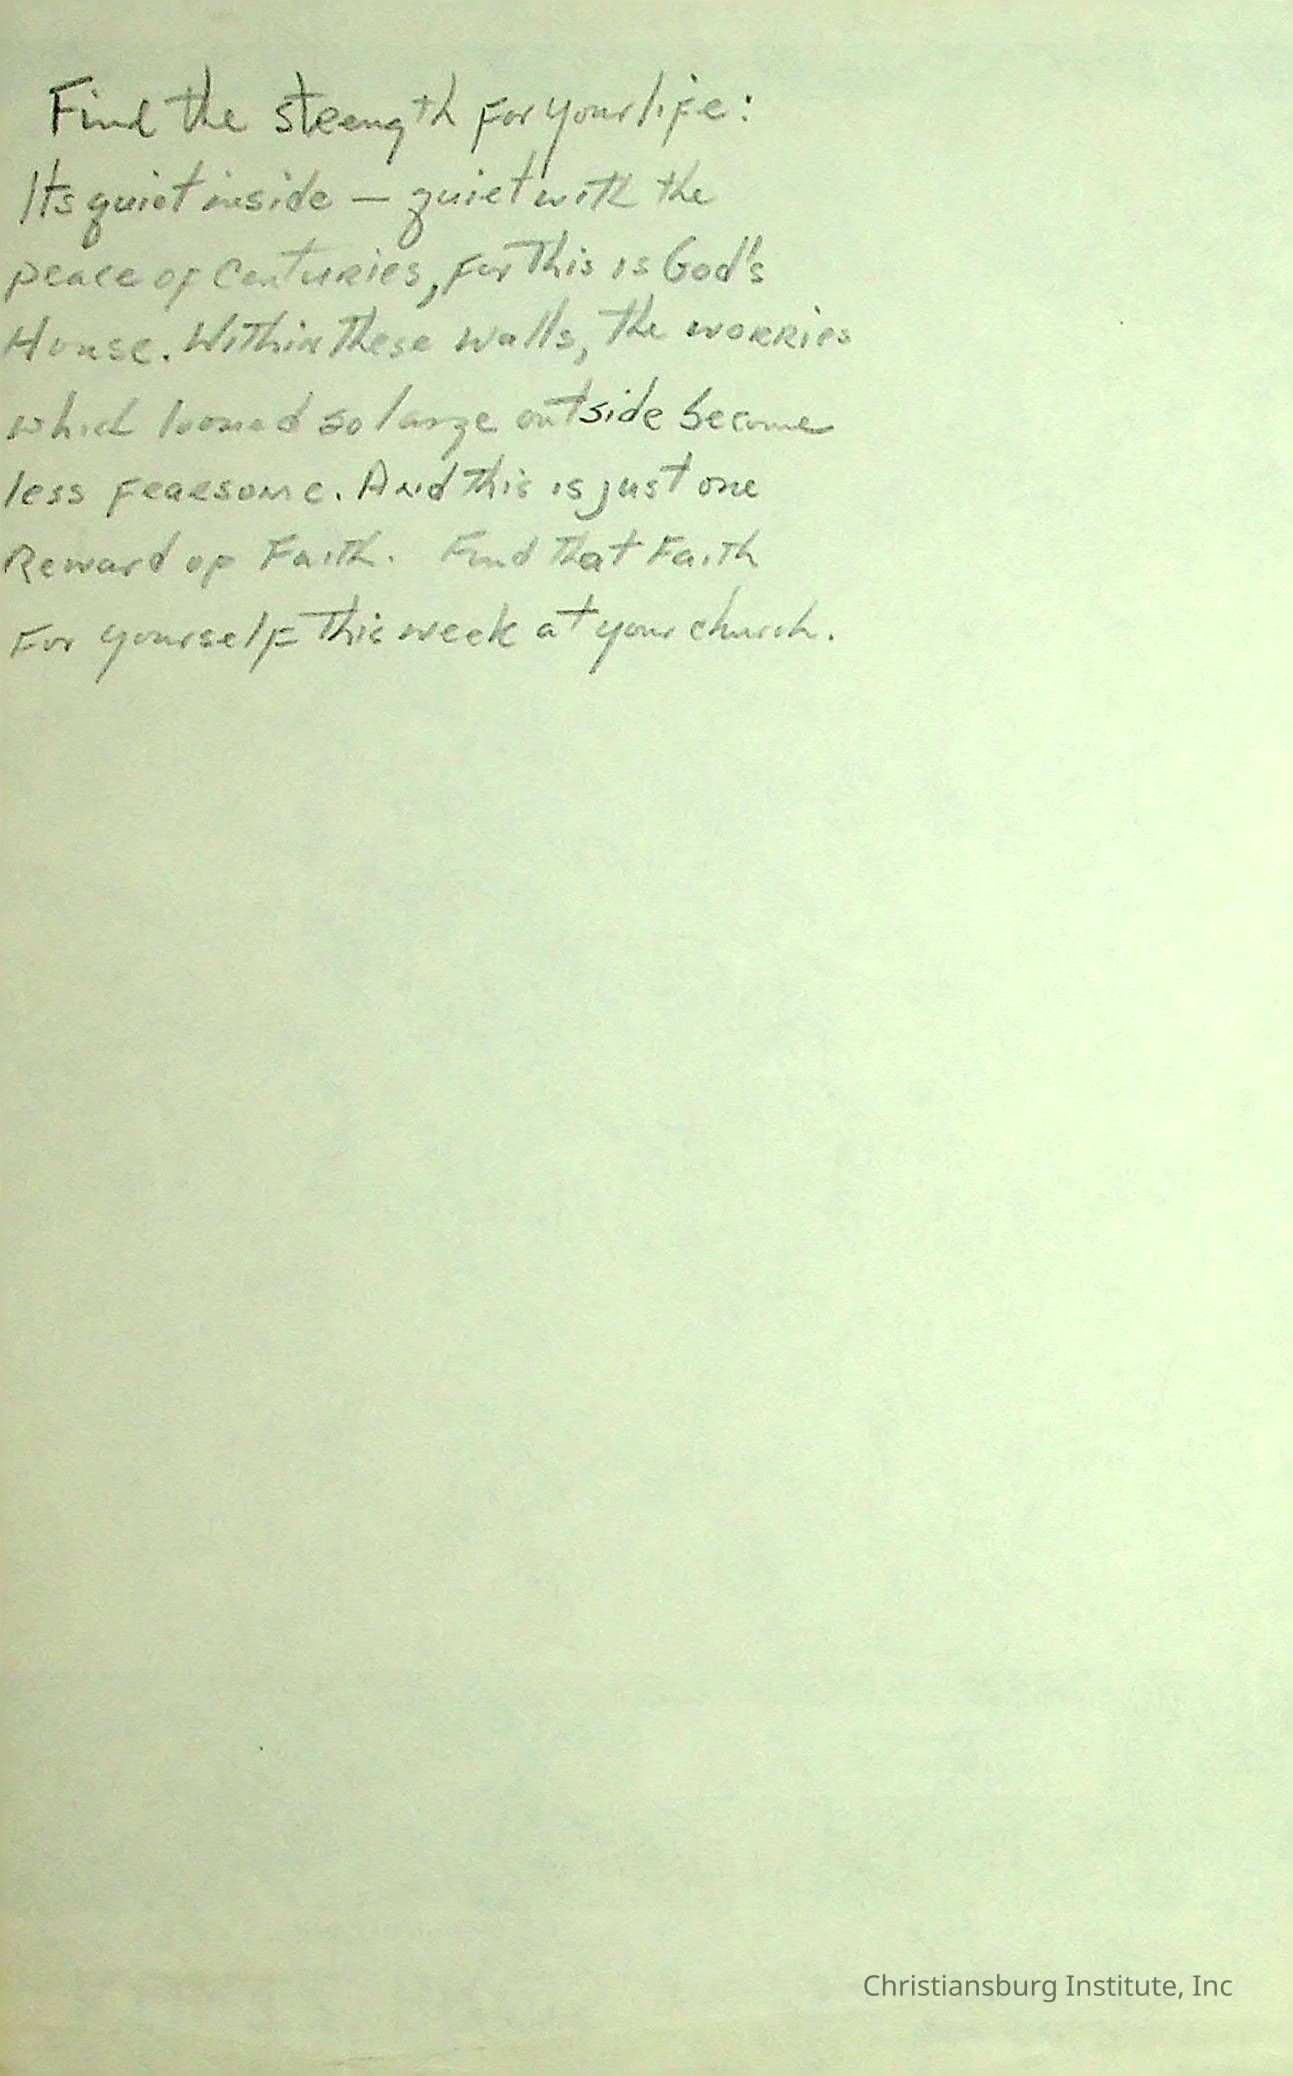 Find the strength for your life:
Its quiet inside — quiet with the
peace of Centuries, for this is God's
House. Within these walls, the worries
which loomed so large outside become
less fearsome. And this is just one
Reward of Faith. Find that Faith
For yourself this week at your church.
Christiansburg Institute, Inc